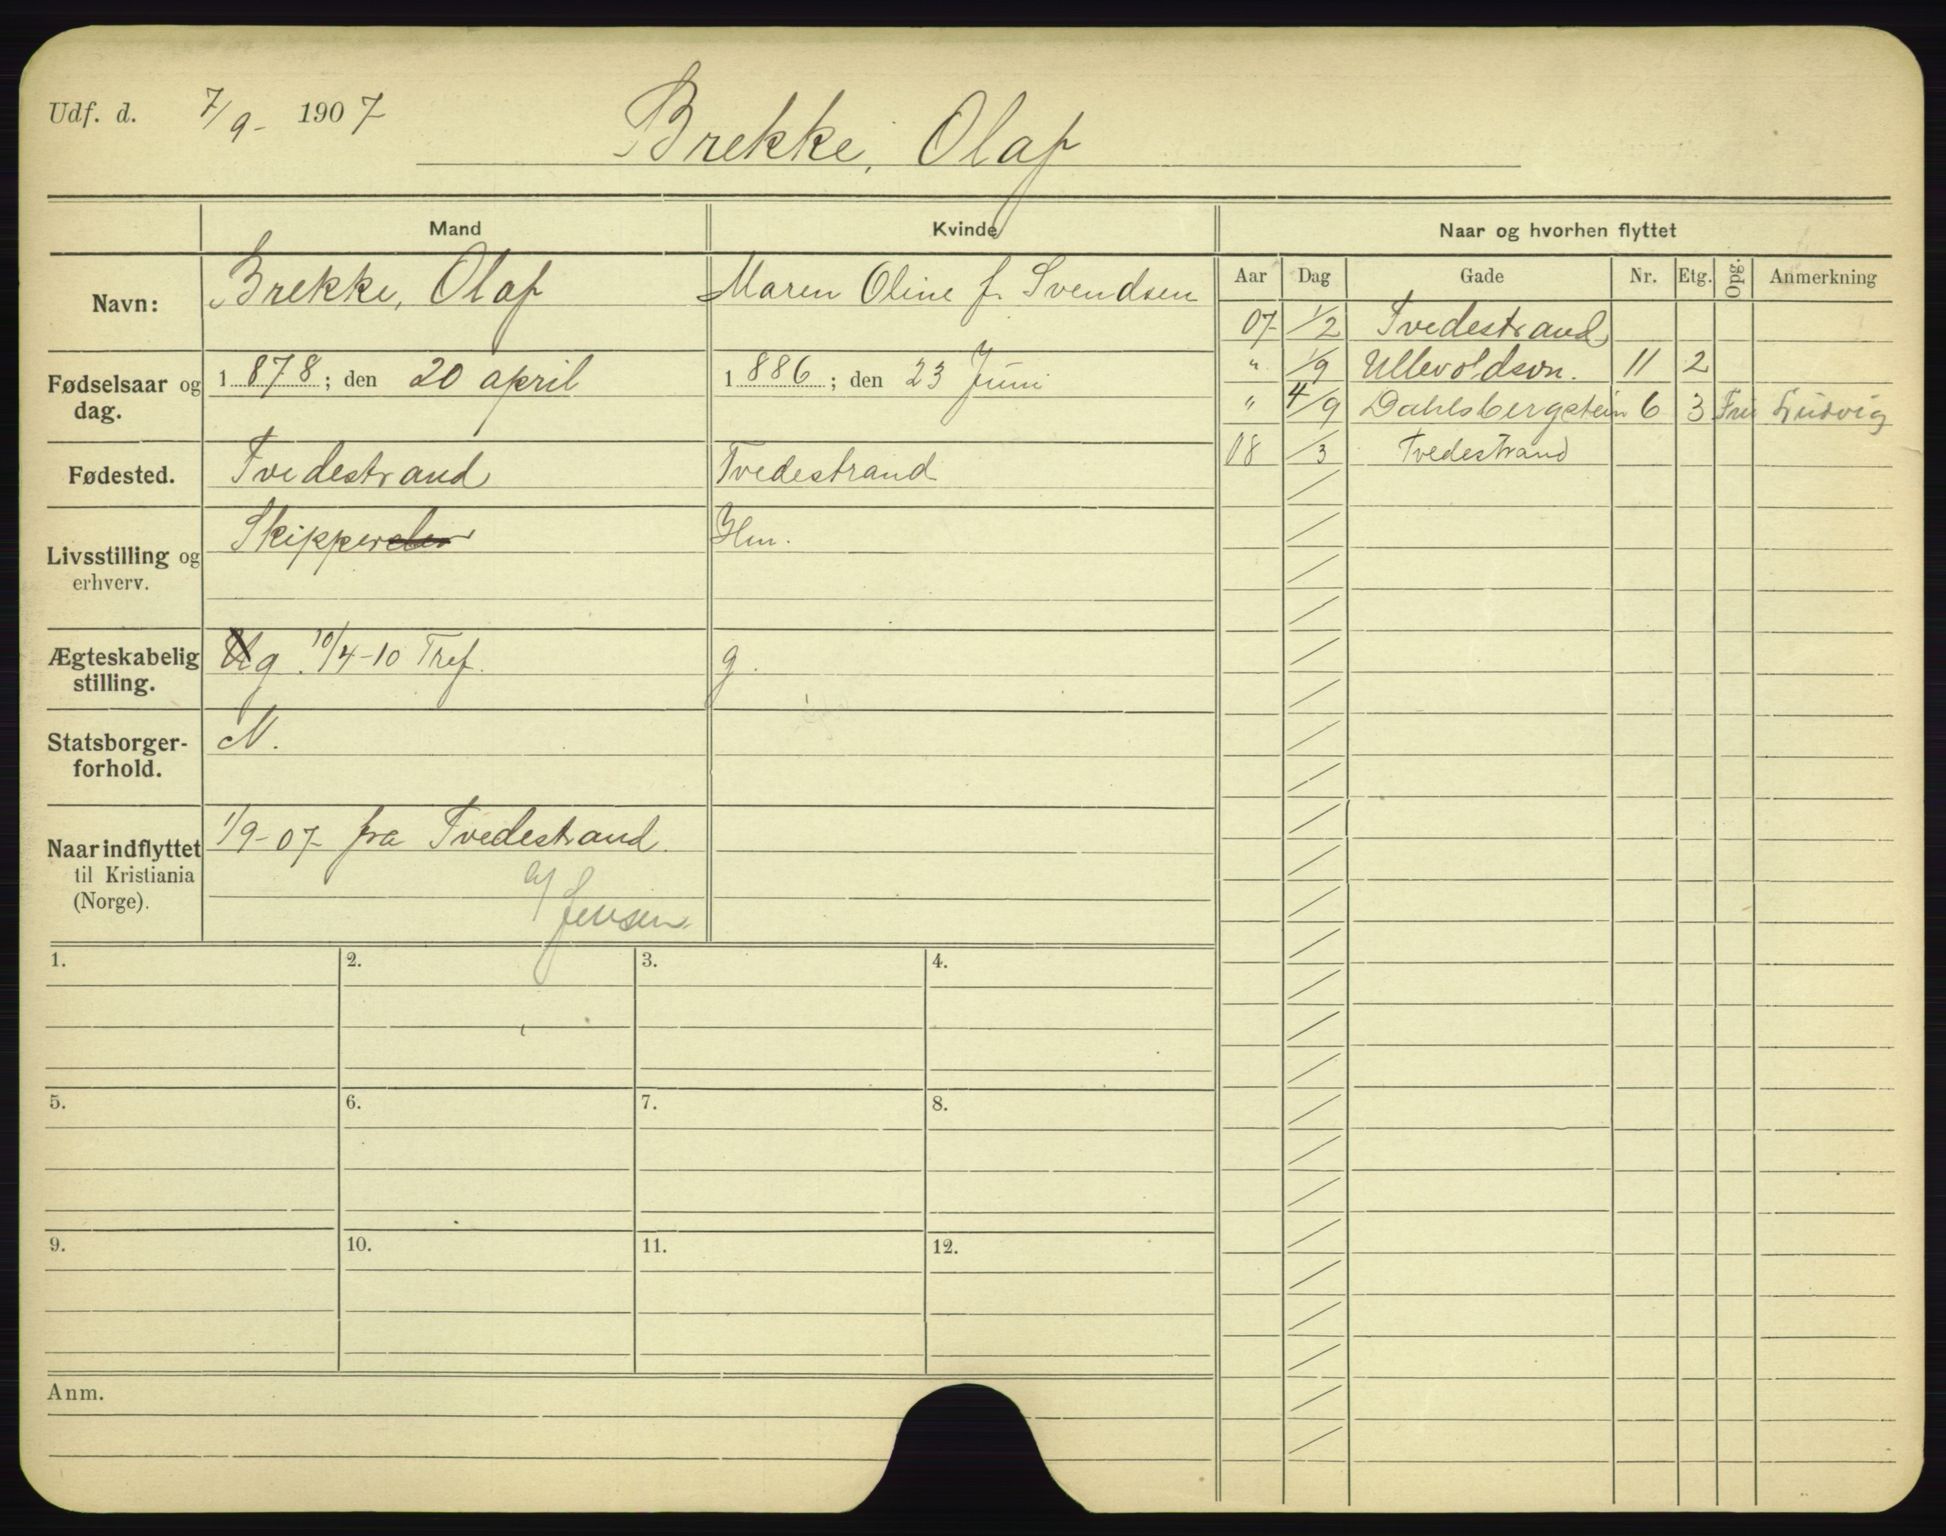 Udf. d. 7/9- 1907
Brekke, Olaf
Mand Kvinde Naar og hvorhen flyttet
Aar Dag Gade Nr. Etg. Opg. Anmerkning
Navn: Brekke, Olaf Maren Oline f. Svendsen
07 1/2 Tvedestrand
Fødselsaar og dag. 1878; den 20 april 1886; den 23 Juni
" 1/9 Ullevoldsvn. 11 2
" 4/9 Dahlsbergstein 6 3 Fru Ludvig
08 /3 Tvedestrand
Fødested. Tvedestrand Tvedestrand
Livsstilling og erhverv. Skipper Hm.
Ægteskabelig stilling. g. 10/4-10 Tref. g.
Statsborger-
forhold. N.
Naar indflyttet
til Kristiania
(Norge).
1/9-07 fra Tvedestrand
Jensen
1. 2. 3. 4.
5. 6. 7. 8.
9. 10. 11. 12.
Anm.